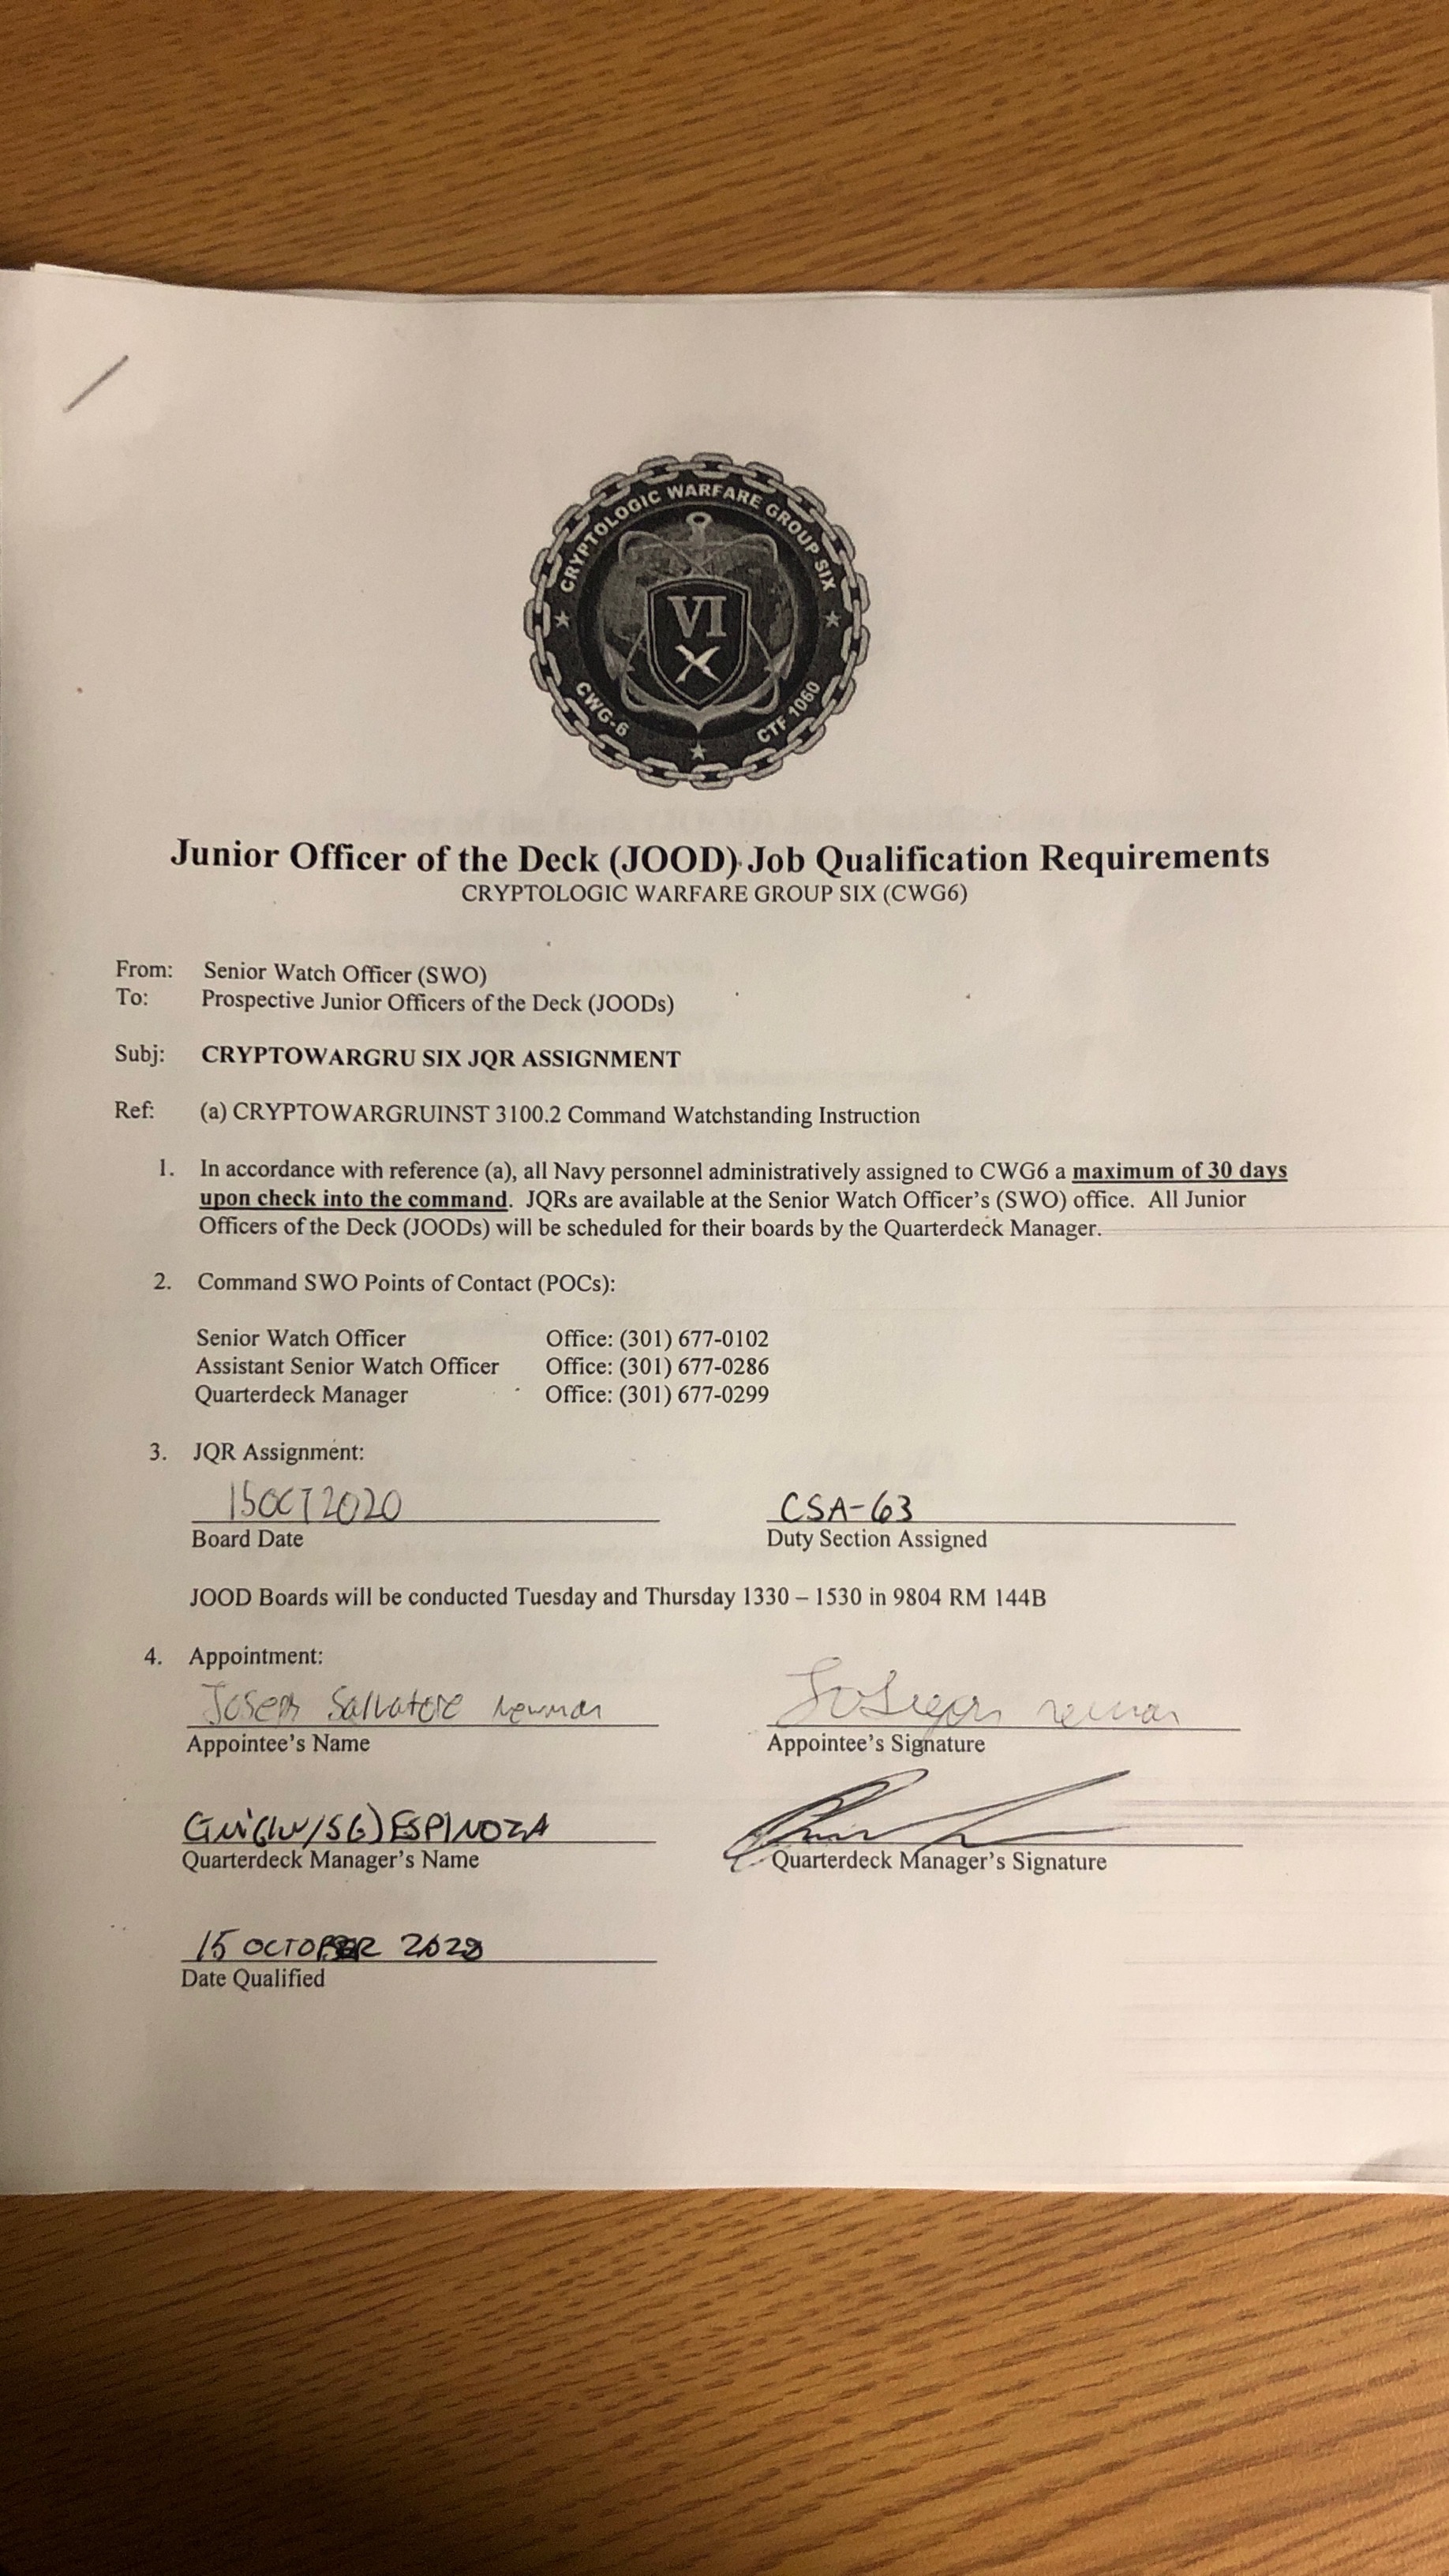 CRYPTOLOGIC WARFARE GROUP SIX
VI
CWG-6
CTF 1060
Junior Officer of the Deck (JOOD) Job Qualification Requirements
CRYPTOLOGIC WARFARE GROUP SIX (CWG6)
From: Senior Watch Officer (SWO)
To: Prospective Junior Officers of the Deck (JOODs)
Subj: CRYPTOWARGRU SIX JQR ASSIGNMENT
Ref: (a) CRYPTOWARGRUINST 3100.2 Command Watchstanding Instruction
1. In accordance with reference (a), all Navy personnel administratively assigned to CWG6 a maximum of 30 days
upon check into the command. JQRs are available at the Senior Watch Officer's (SWO) office. All Junior
Officers of the Deck (JOODs) will be scheduled for their boards by the Quarterdeck Manager.
2. Command SWO Points of Contact (POCs):
Senior Watch Officer Office: (301) 677-0102
Assistant Senior Watch Officer Office: (301) 677-0286
Quarterdeck Manager Office: (301) 677-0299
3. JQR Assignment:
15OCT2020 CSA-63
Board Date Duty Section Assigned
JOOD Boards will be conducted Tuesday and Thursday 1330 – 1530 in 9804 RM 144B
4. Appointment:
Joseph Salvatore Newman
Appointee's Name Appointee's Signature
ESPINOZA
Quarterdeck Manager's Name Quarterdeck Manager's Signature
15 OCTOBER 2020
Date Qualified